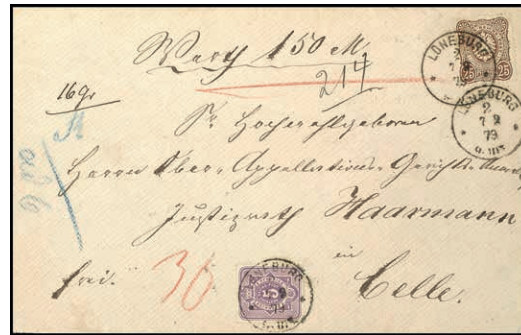 Werth 150 M.
214
16 Gr
Sr. Hochwohlgeboren
Herrn Ober-Appellations-Gerichts-
Justizrath Haarmann
in
frei. 30 Celle.
25 25
LÜNEBURG
2
79
LÜNEBURG
2
7 2
79
LÜNEBURG
5
79